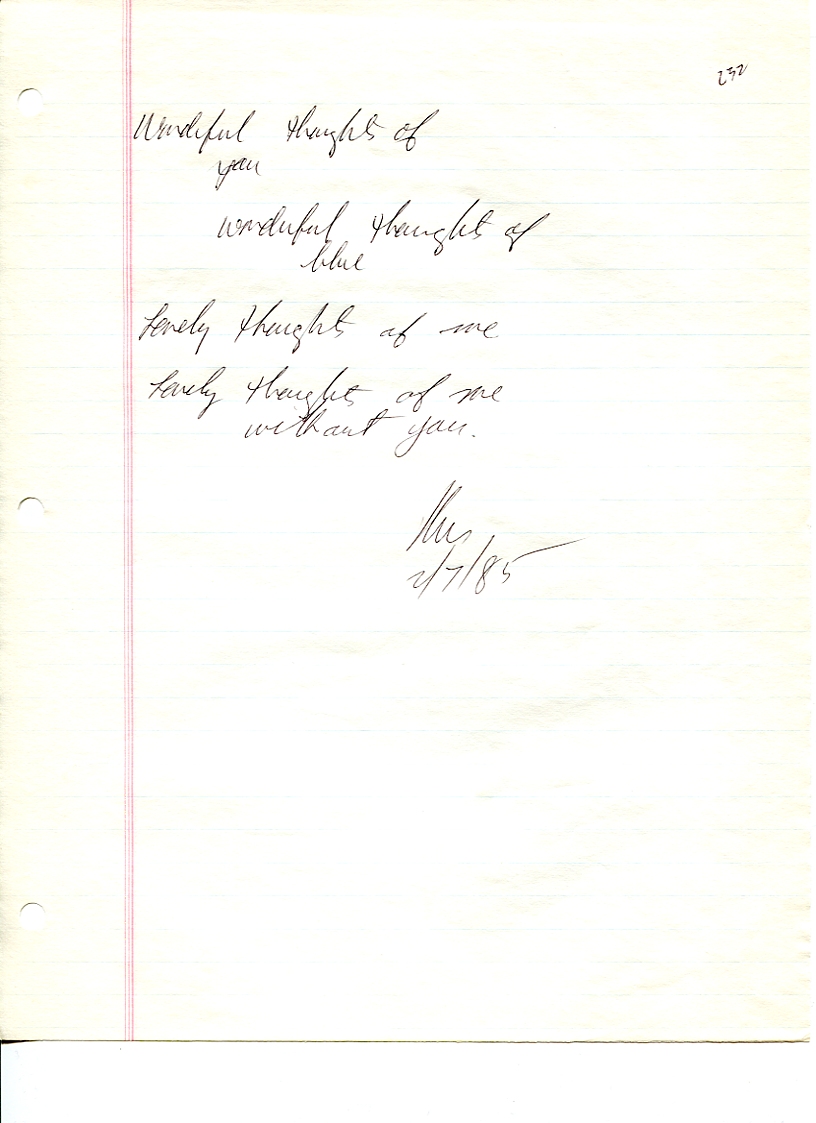 232
Wonderful thoughts of
you
wonderful thoughts of
blue
Lonely thoughts of me
Lonely thoughts of me
without you.
2/7/85